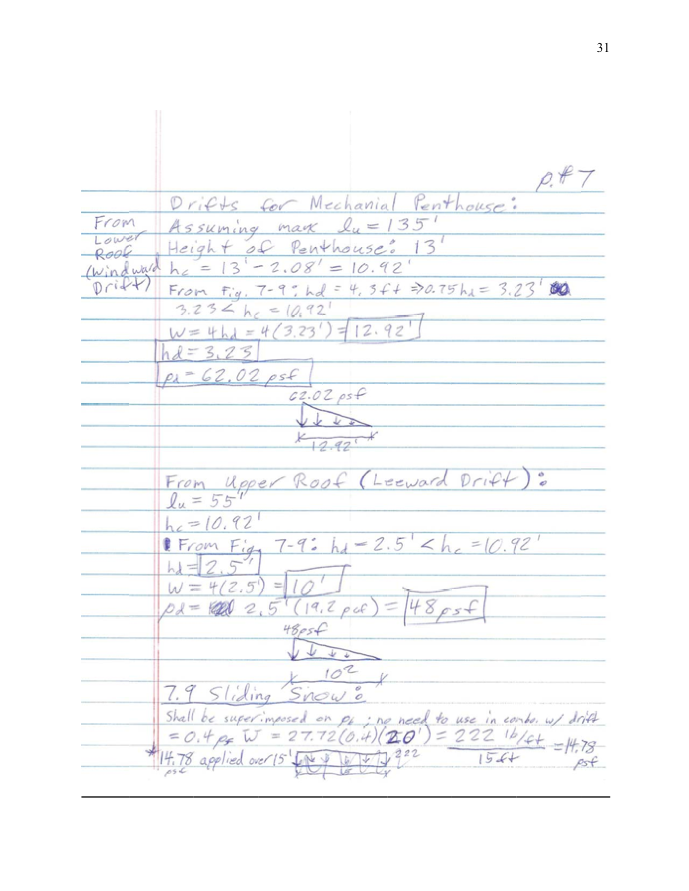 31
p.#7
Drifts for Mechanial Penthouse:
From Lower Roof (Windward Drift)
Assuming max lu = 135'
Height of Penthouse: 13'
hc = 13' - 2.08' = 10.92'
From Fig. 7-9: hd = 4.3ft ⇒ 0.75hd = 3.23'
3.23 < hc = 10.92'
W = 4hd = 4(3.23') = 12.92'
hd = 3.23
pd = 62.02 psf
62.02 psf
12.92'
From Upper Roof (Leeward Drift):
lu = 55'
hc = 10.92'
From Fig. 7-9: hd = 2.5' < hc = 10.92'
hd = 2.5'
W = 4(2.5') = 10'
pd = 2.5'(19.2 pcf) = 48 psf
48psf
7.9 Sliding Snow:
Shall be superimposed on ; no need to use in comb. w/ drift
= 0.4 pf W = 27.72(0.4)(20') = 222 lb/ft / 15 ft = 14.78 psf
*14.78 psf applied over 15' 222